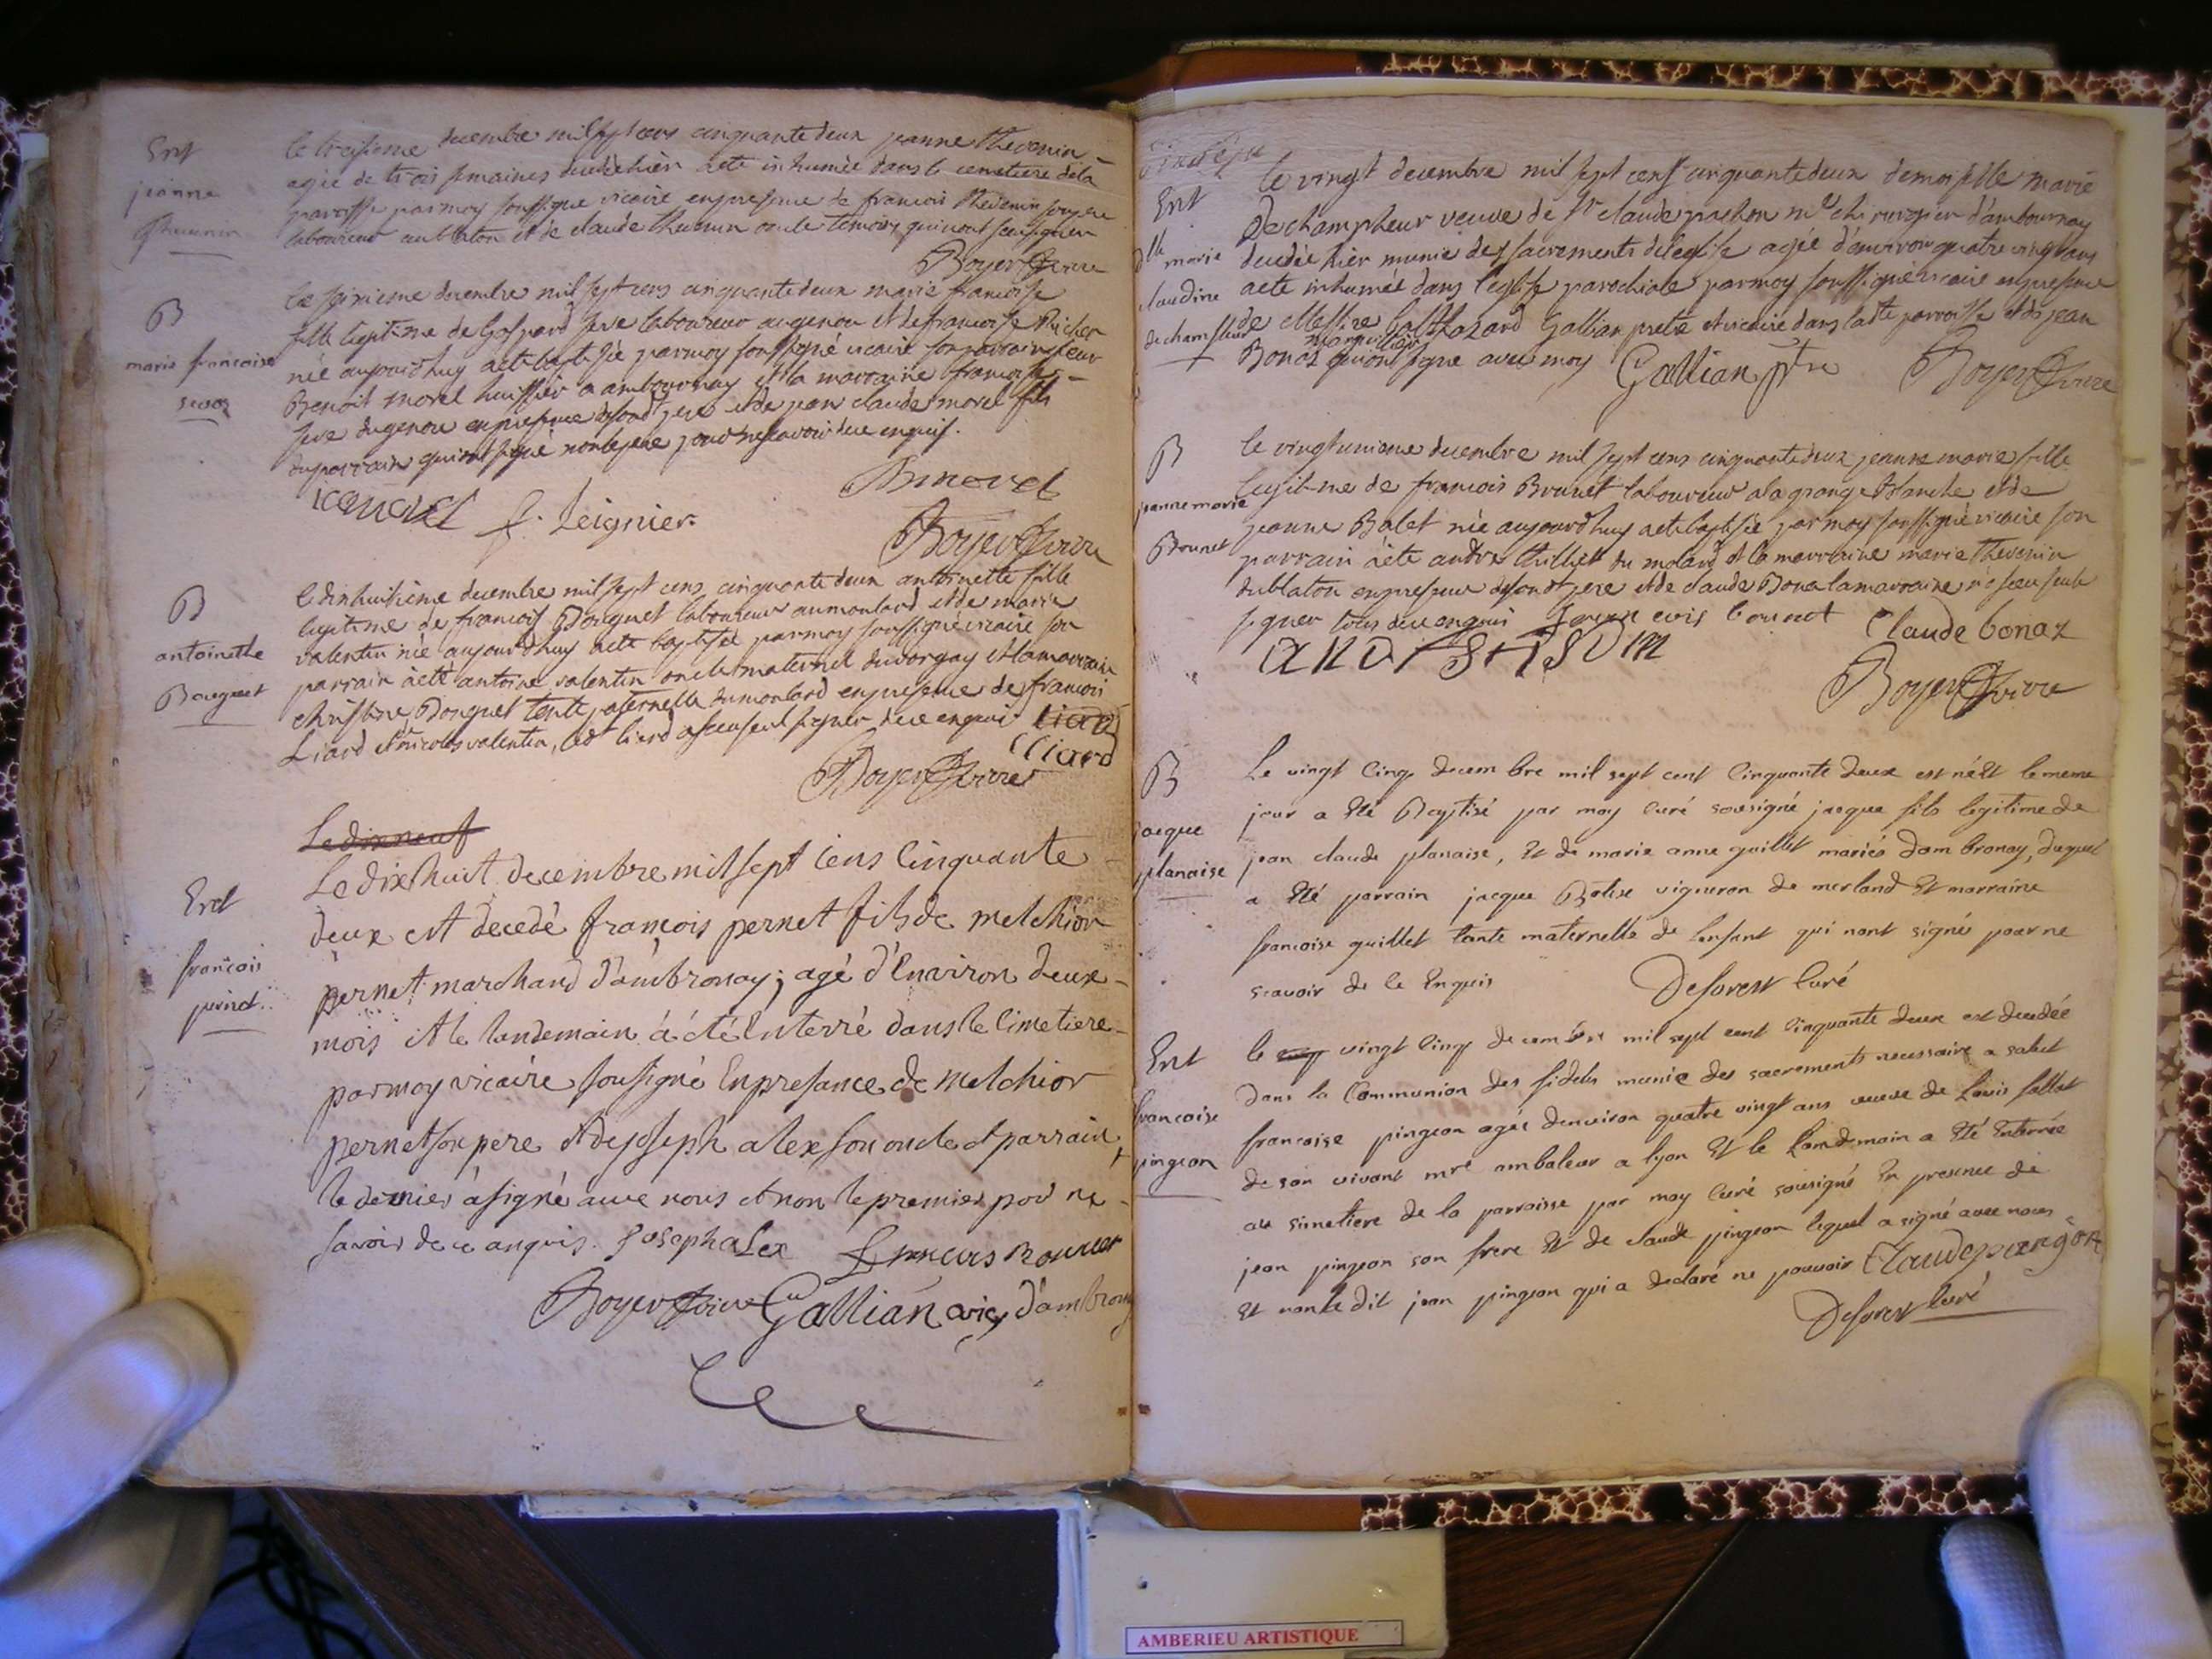 Ent
jeanne
thevenin
le treisieme decembre mil sept cens cinquante deux jeanne thevenin
agée de trois semaines decedée hier a été inhumée dans le cemetiere de la
parroisse par moy soussigné vicaire en presence de francois thevenin son pere
laboureur au blaton et de claude thevenin oncle temoins qui n'ont sceu signer
Boyer vicaire
B
marie francoise
seve
le seisieme decembre mil sept cens cinquante deux marie francoise
fille legitime de Gaspard seve laboureur au genou et de francoise Richer
née aujourd'huy a été baptisée par moy soussigné vicaire son parrain sieur
Benoit morel huissier a ambournay et la marraine francoise
seve du genou en presence dud pere et de jean claude morel fils
du parrain qui ont signé non le pere pour ne scavoir de ce enquis.
Bmorel
jcmorel f. Leignier.
Boyer vicaire
B
antoinette
Bouquet
le dixhuitième decembre mil sept cens cinquante deux antoinette fille
legitime de francois Bouquet laboureur au moulard et de marie
valentin née aujourd'huy a été baptisée par moy soussigné vicaire son
parrain a été antoine valentin oncle maternel du vorgay et la marraine
christine Bouquet tente paternelle du moulard en presence de francois
Liard et nicolas valentin, led liard a sceu seul signer de ce enquis liard
liard
Boyer vicaire
Le dix neuf
Ent
francois
pernet
Le dix huit decembre mil sept cens cinquante
deux est decedé françois pernet fils de melchior
pernet marchand d'ambronay; agé d'Environ deux
mois et le landemain à été Enterré dans le cimetiere
par moy vicaire sousigné En presance de melchior
pernet son pere et de joseph alex son oncle et parrain,
le dernier à signé avec nous et non le premier pour ne
savoir de ce anquis. Joseph alex
Boyer vicaire Gallian vic d'ambronay
Ent
dlle marie
claudine
dechampfleur
le vingt decembre mil sept cens cinquante deux demoiselle marie
Dechampheur veuve de Sr claude pashon me chirurgien d'ambournay
decedée hier munie des sacrements de l'eglise agée d'environ quatre vingt ans
a été inhumée dans l'eglise parochiale par moy soussigné vicaire en presence
de Messire Balthazard Gallian pretre et vicaire dans ladte parroisse et de jean
Bonaz marguillier qui ont signé avec moy Gallian ptre Boyer vicaire
B
jeanne marie
Brunet
le vingt unieme decembre mil sept cens cinquante deux jeanne marie fille
legitime de francois Brunet laboureur a la grange blanche et de
jeanne Balet née aujourd'huy a été baptisée par moy soussigné vicaire son
parrain a été andre thillet du molard et la marraine marie thevenin
du blaton en presence dud pere et de claude Bona la marraine n'a sceu seule
signer tous de ce enquis
Claude bonaz
Boyer vicaire
B
jacque
planaise
Le vingt Cinq decembre mil sept cent Cinquante deux est né Et le meme
jour a Eté Baptisé par moy Curé sousigné jacque fils legitime de
jean claude planaise, Et de marie anne guillet mariés dambronay, duquel
a Eté parrain jacque Batise vigneron de merland Et marraine
francoise guillet tante maternelle de lenfant qui nont signés pour ne
scavoir de ce Enquis Deforest Curé
Ent
francoise
pingeon
le vingt Cinq decembre mil sept cent Cinquante deux est decedée
dans la Communion des fideles munie des sacrements necessaire a salut
francoise pingeon agée denviron quatre vingt ans veuve de Louis sollet
de son vivant mre ambaleur a lyon Et le Landemain a Eté Enterrée
au simetiere de la parroisse par moy Curé sousigné En presence de
jean pingeon son frere Et de claude pingeon lequel a signé avec nous
Et non le dit jean pingeon qui a declaré ne pouvoir Claude pingon
Deforest Curé
AMBERIEU ARTISTIQUE